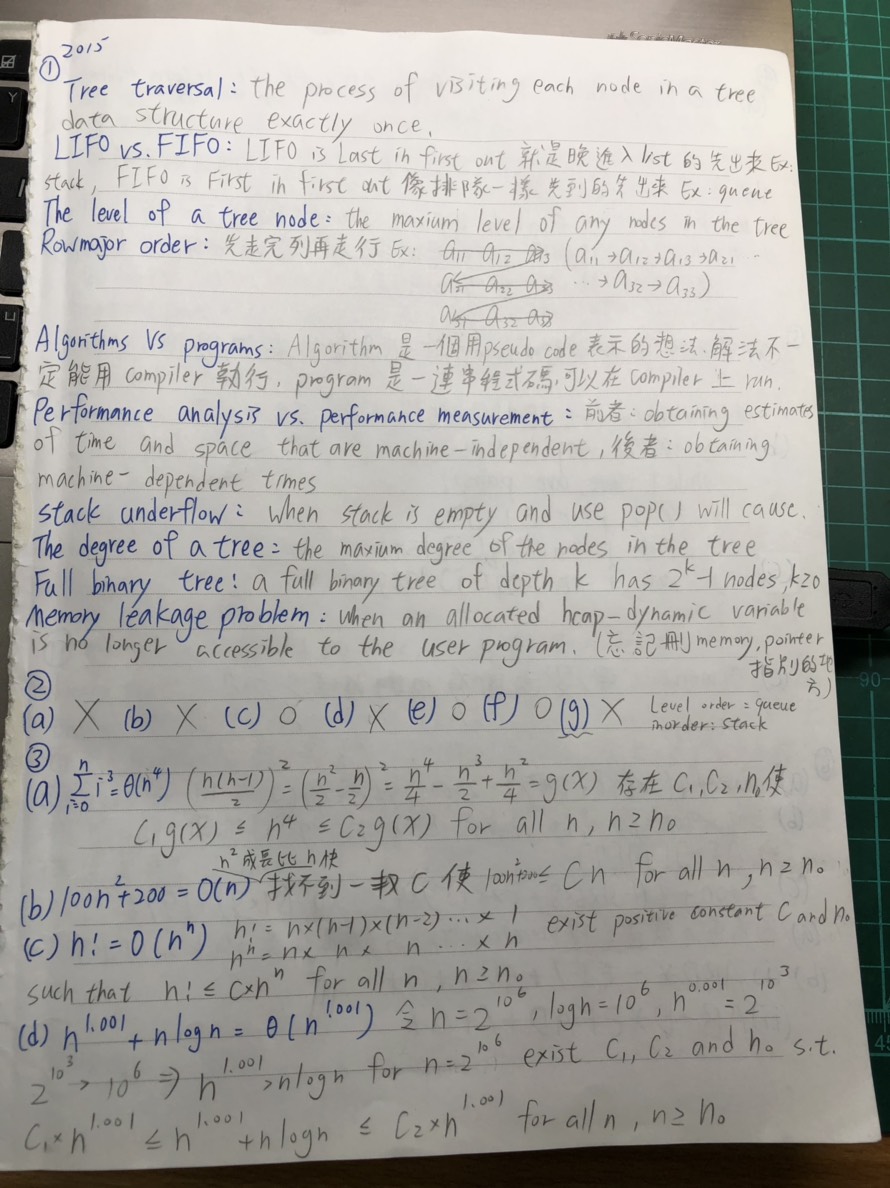 2015
①
Tree traversal: the process of visiting each node in a tree
data structure exactly once.
LIFO vs. FIFO: LIFO is Last in first out 就是晚進入list的先出來 Ex:
stack, FIFO is First in first out 像排隊一樣先到的先出來 Ex: queue
The level of a tree node: the maxium level of any nodes in the tree
Row major order: 先走完列再走行 Ex: a11 a12 a13 (a11→a12→a13→a21 ..
a21 a22 a23 ...→a32→a33)
a31 a32 a33
Algorithms vs programs: Algorithm 是一個用pseudo code 表示的想法.解法不一
定能用 compiler 執行, program 是一連串程式碼,可以在 compiler 上 run.
Performance analysis vs. performance measurement: 前者: obtaining estimates
of time and space that are machine-independent, 後者: obtaining
machine-dependent times
stack underflow: When stack is empty and use pop() will cause.
The degree of a tree: the maxium degree of the nodes in the tree
Full binary tree: a full binary tree of depth k has 2^k-1 nodes, k≥0
Memory leakage problem: when an allocated heap-dynamic variable
is no longer accessible to the user program. (忘記刪memory, pointer
指別的地
方)
②
(a) X (b) X (c) O (d) X (e) O (f) O (g) X Level order = queue
inorder: stack
③
(a) Σ_{i=0}^{n} i^3 = θ(n^4) (n(n-1)/2)^2 = (n^2/2 - n/2)^2 = n^4/4 - n^3/2 + n^2/4 = g(x) 存在 C1, C2, n0使
C1g(x) ≤ n^4 ≤ C2g(x) for all n, n≥n0
n^2 成長比 n 快
(b) 100n^2+200 = O(n) 找不到一 C 使 100n^2+200 ≤ Cn for all n, n≥n0
(c) n! = O(n^n) n! = n×(n-1)×(n-2)...×1 exist positive constant C and n0
n^n = n× n × n ...× n
such that n! ≤ C×n^n for all n, n≥n0
(d) n^1.001 + n log n = θ(n^1.001) 令 n=2^10^6, log n=10^6, n^0.001=2^10^3
2^10^3 > 10^6 ⇒ n^1.001 > n log n for n=2^10^6 exist C1, C2 and n0 s.t.
C1×n^1.001 ≤ n^1.001 + n log n ≤ C2×n^1.001 for all n, n≥n0